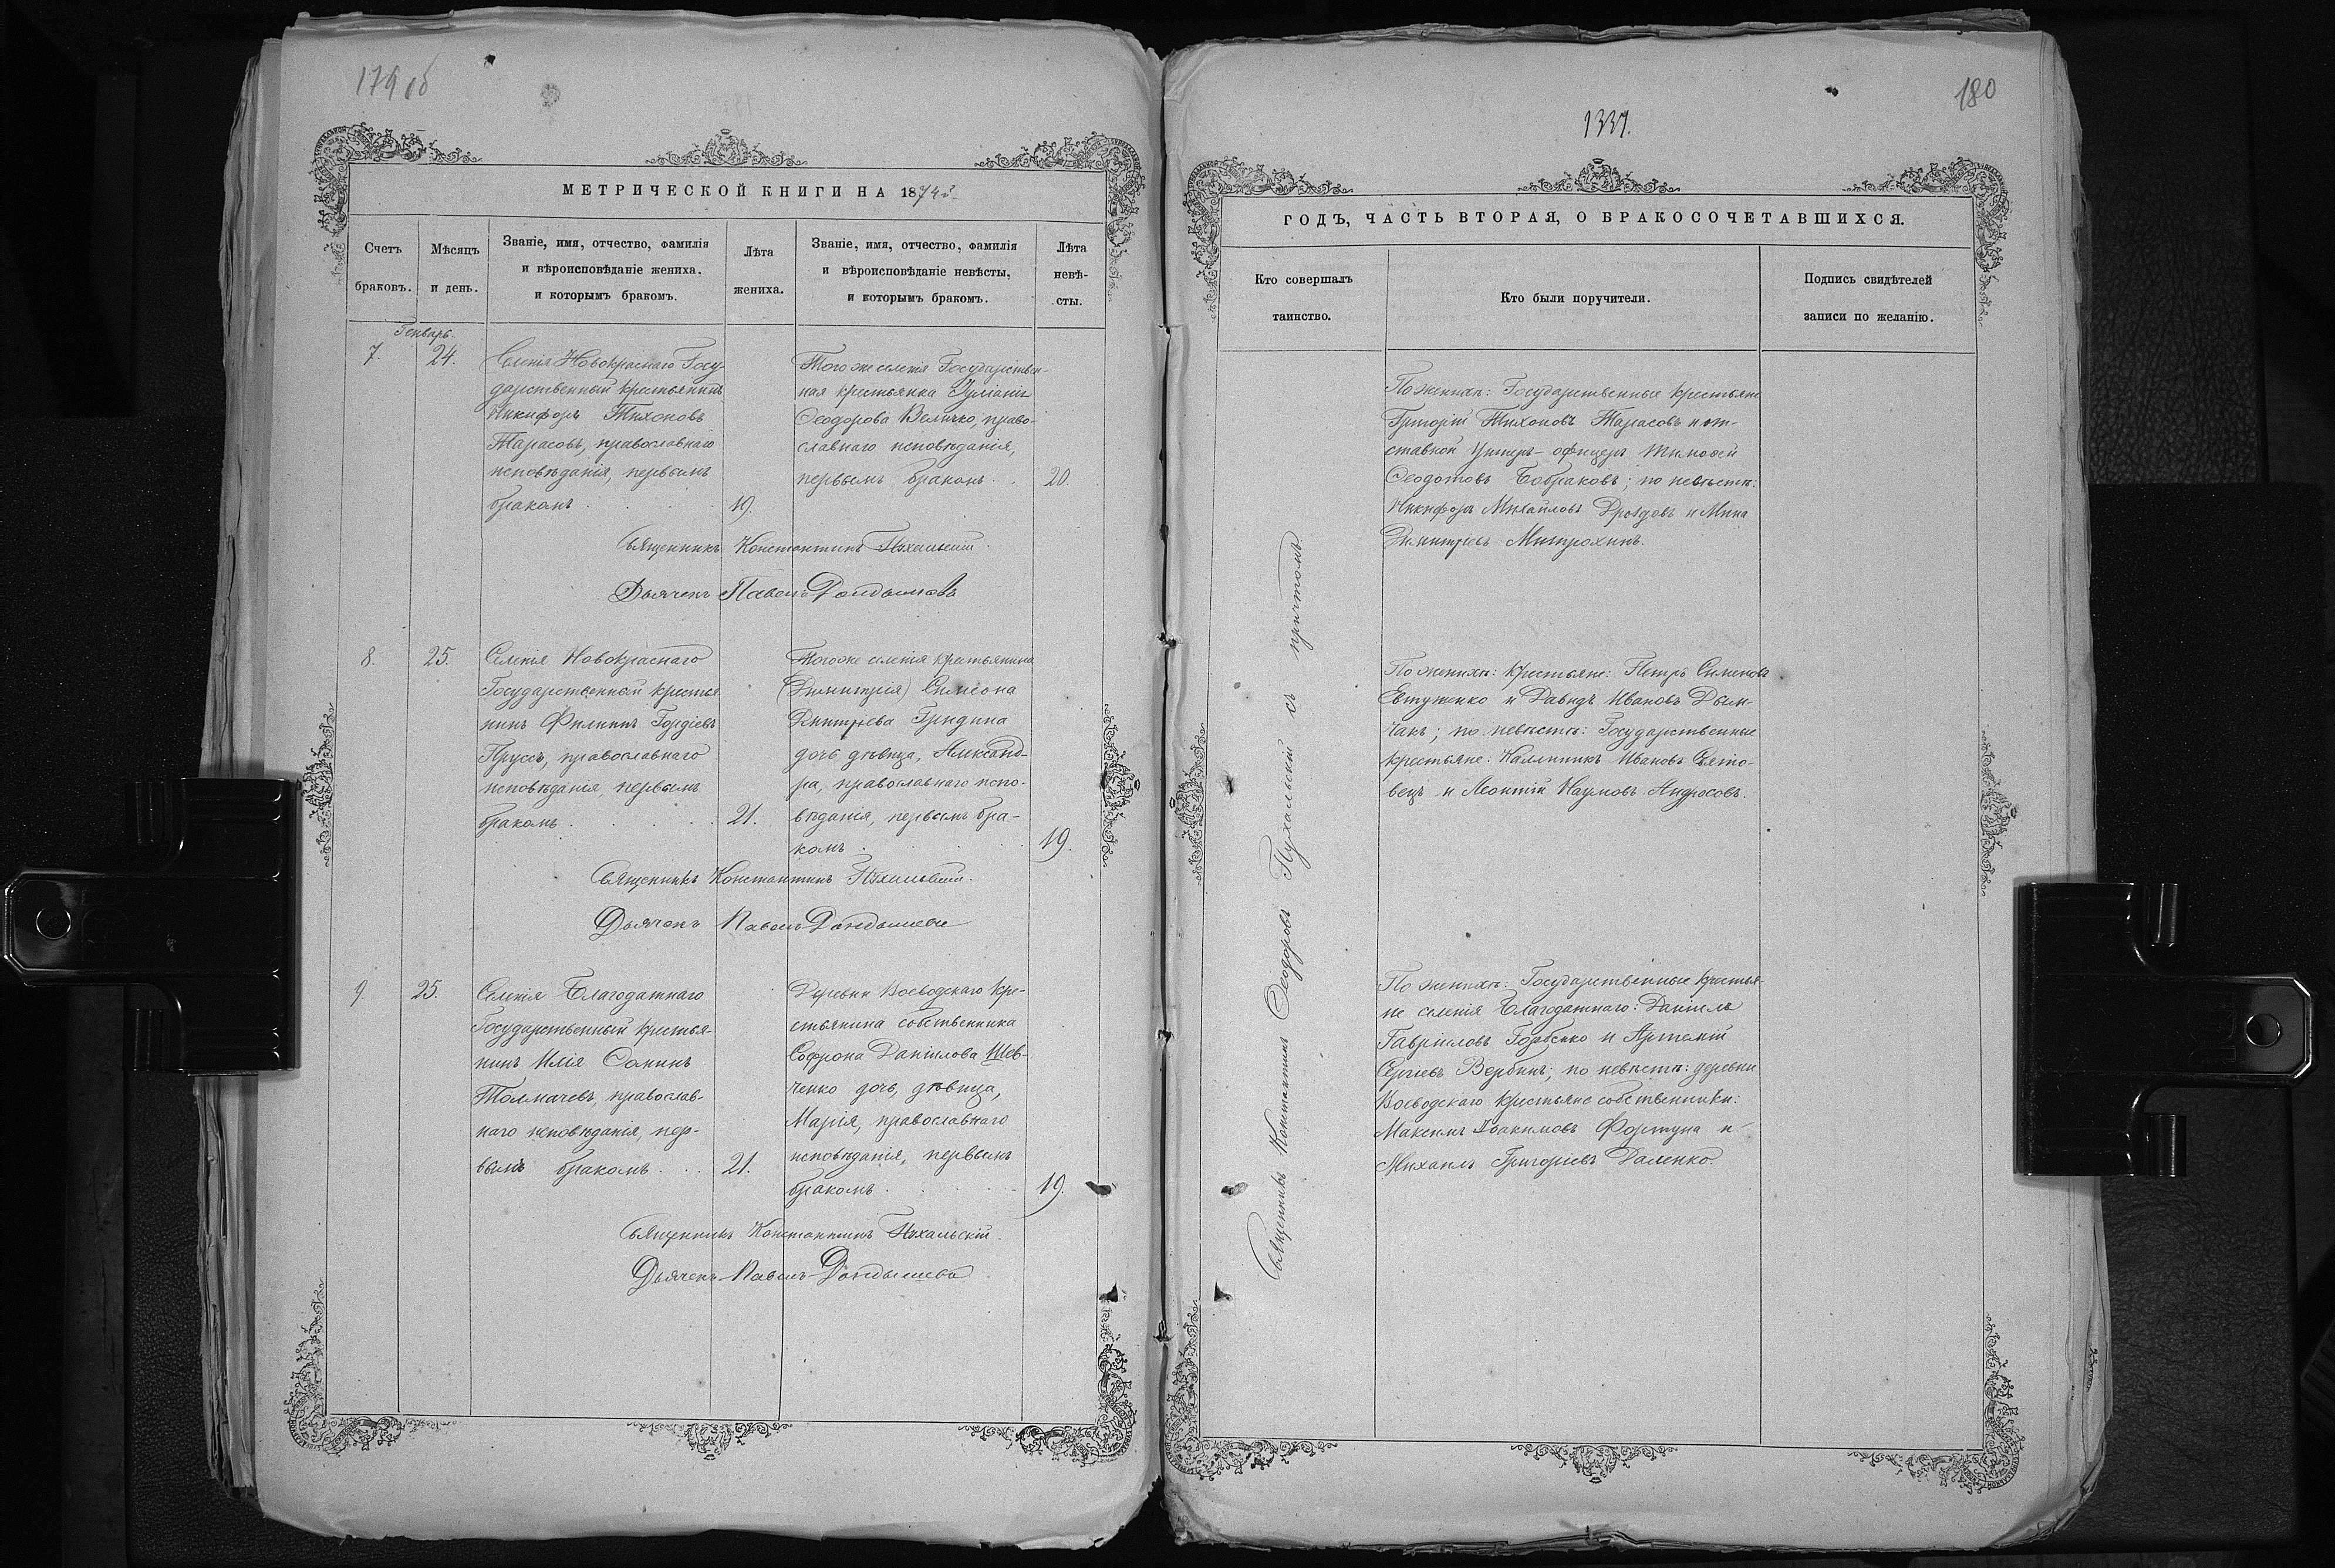 179 об
МЕТРИЧЕСКОЙ КНИГИ НА 1874й
Счетъ браковъ.
Мѣсяцъ и день.
Званіе, имя, отчество, фамилія
и вѣроисповѣданіе жениха,
и которымъ бракомъ.
Лѣта жениха.
Званіе, имя, отчество, фамилія
и вѣроисповѣданіе невѣсты,
и которымъ бракомъ.
Лѣта невѣ-
сты.
Генварь.
7. 24.
Селенія Новокраснаго Госу-
дарственный крестьянинъ
Никифоръ Тихоновъ
Тарасовъ, православнаго
исповѣданія, первымъ
бракомъ 19.
Того же селенія Государствен-
ная крестьянка Іуліанія
Ѳеодорова Величко, право-
славнаго исповѣданія,
первымъ бракомъ. 20.
Священникъ Константинъ Пухальскій.
Дьячекъ Павелъ
8. 25.
Селенія Новокраснаго
Государственный крестья
нинъ Филиппъ Гордіевъ
Пруссъ, православнаго
исповѣданія, первымъ
бракомъ 21.
Того же селенія крестьянина
(Димитрія) Симеона
Дмитріева Гридина
дочь дѣвица, Александ-
ра, православнаго испо-
вѣданія, первымъ бра-
комъ 19.
Священникъ Константинъ Пухальскій.
Дьячекъ Павелъ
9. 25.
Селенія Благодатнаго
Государственный крестья-
нинъ Илія Санинъ
Толмачевъ, православ-
наго исповѣданія, пер-
вымъ бракомъ 21.
Деревни Воеводскаго кре-
стьянина собственника
Софрона Даніилова Шев-
ченко дочь, дѣвица,
Марія, православнаго
исповѣданія, первымъ
бракомъ 19.
Священникъ Константинъ Пухальскій.
Дьячекъ Павелъ
180
1337.
ГОДЪ, ЧАСТЬ ВТОРАЯ, О БРАКОСОЧЕТАВШИХСЯ.
Кто совершалъ
таинство.
Кто были поручители.
Подпись свидѣтелей
записи по желанію.
Священникъ Константинъ Ѳеодоровъ Пухальскій съ причтомъ
По женихѣ: Государственные крестьяне
Григорій Тихоновъ Тарасовъ и от-
ставной Унтеръ-офицеръ Тимоѳей
Ѳеодотовъ Бобраковъ; по невѣстѣ:
Никифоръ Михайловъ Дроздовъ и Мина
Димитріевъ Митрохинъ.
По женихѣ: Крестьяне: Петръ Сименовъ
Евтушенко и Давидъ Ивановъ Дым-
чакъ; по невѣстѣ: Государственные
крестьяне: Каллиникъ Ивановъ
и Леонтій Наумовъ Андросовъ.
По женихѣ: Государственные крестья-
не селенія Благодатнаго: Даніилъ
Гавріиловъ Горбенко и Артемій
Сергіевъ Вербинъ; по невѣстѣ: деревни
Воеводскаго крестьяне собственники:
Максимъ Іоакимовъ Фортуна и
Михаилъ Григорьевъ Даленко.